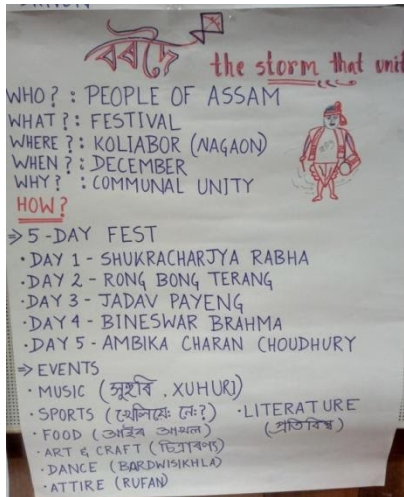 বৰদৈ the storm that unit
WHO? : PEOPLE OF ASSAM
WHAT? : FESTIVAL
WHERE? : KOLIABOR (NAGAON)
WHEN? : DECEMBER
WHY? : COMMUNAL UNITY
HOW?
⇒ 5-DAY FEST
· DAY 1 - SHUKRACHARJYA RABHA
· DAY 2 - RONG BONG TERANG
· DAY 3 - JADAV PAYENG
· DAY 4 - BINESWAR BRAHMA
· DAY 5 - AMBIKA CHARAN CHOUDHURY
⇒ EVENTS
· MUSIC (সুহুৰি, XUHURI)
· SPORTS (খেলিযে নে?) · LITERATURE
· FOOD (আইৰ আখল) (প্ৰতিবিম্ব)
· ART & CRAFT
· DANCE (BARDWISIKHLA)
· ATTIRE (RUFAN)